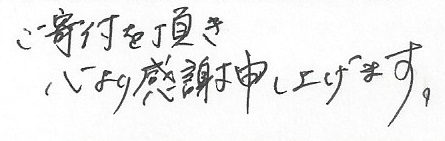 ご寄付を頂き
心より感謝申し上げます。